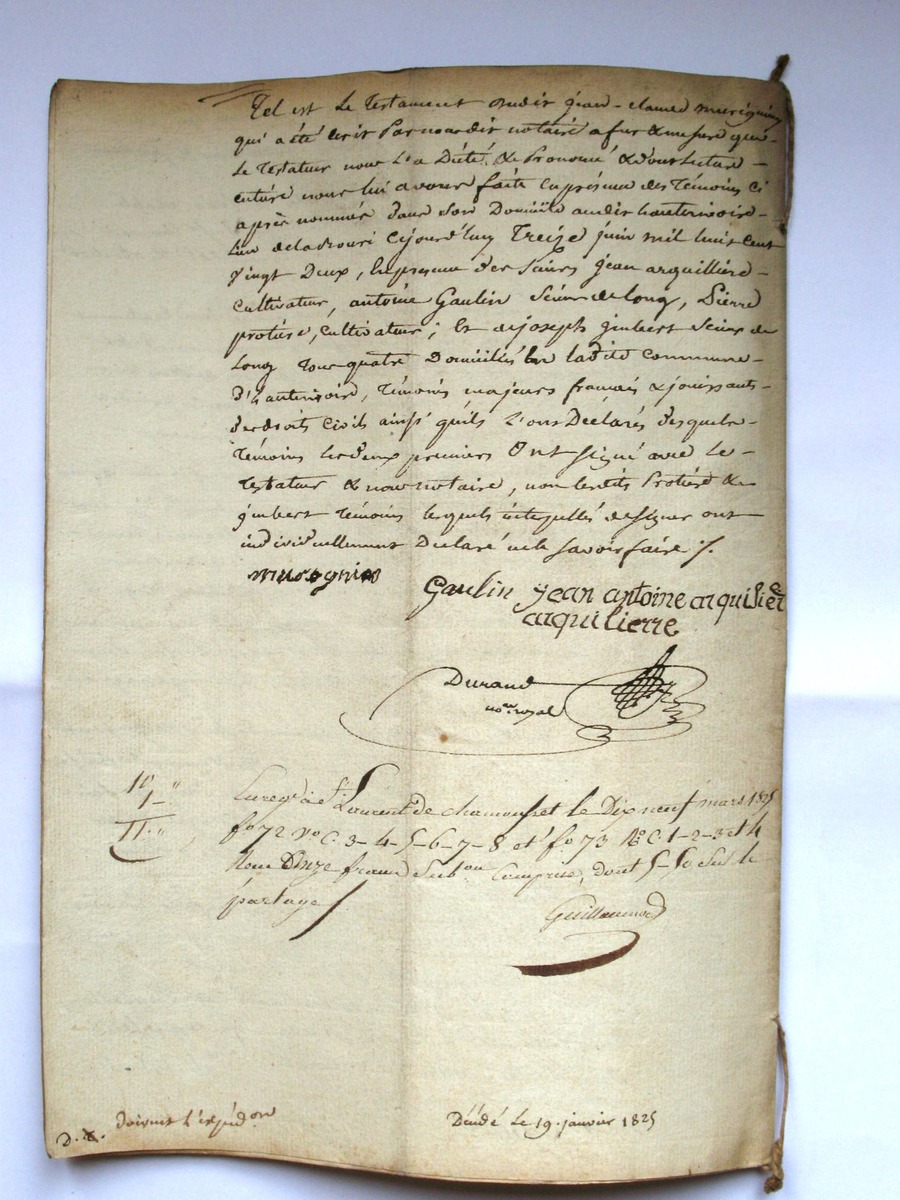 Tel est le testament dudit jean-claude murignieu
qui a été écrit Par nous dit notaire a fur & mesure que
Le Testateur nous l'a Dicté & Prononcé & d'ont Lecture
entière nous lui avons faite en présence des Témoins ci
après nommés dans son Domicile audit hauterivoire
lieu de cejourd'huy Treize juin mil huit cent
Vingt Deux, En présence des Sieurs jean arquilliere
cultivateur, antoine Gaulin Scieur de long, Pierre
protière, cultivateur; Et de joseph jimbert Scieur de
Long tous quatre Domiciliés en ladite commune
D'hauterivoire, témoins majeurs français & jouissants
des droits civils ainsi qu'ils l'ont Déclarés desquels
Témoins les deux premiers Ont signé avec le
Testateur & nous notaire, non lesdits Protière &
jimbert Témoins lesquels interpellés de signer ont
individuellement Déclaré ne le savoir faire /.
Gaulin jean antoine arquilier
arquilierre
Durand
nore royal
10 "
1 -
11 - "
Enregé à St Laurent de chamousset le Dix neuf mars 1825
fo 72 vo C. 3-4-5-6-7-8 et fo 73 Ro C. 1-2-3 et 4
Reçu Onze francs Subon Comprise, dont 5-50 sur le
partage
Guillaumod
D. doivent l'expédon
Décédé le 19 janvier 1825